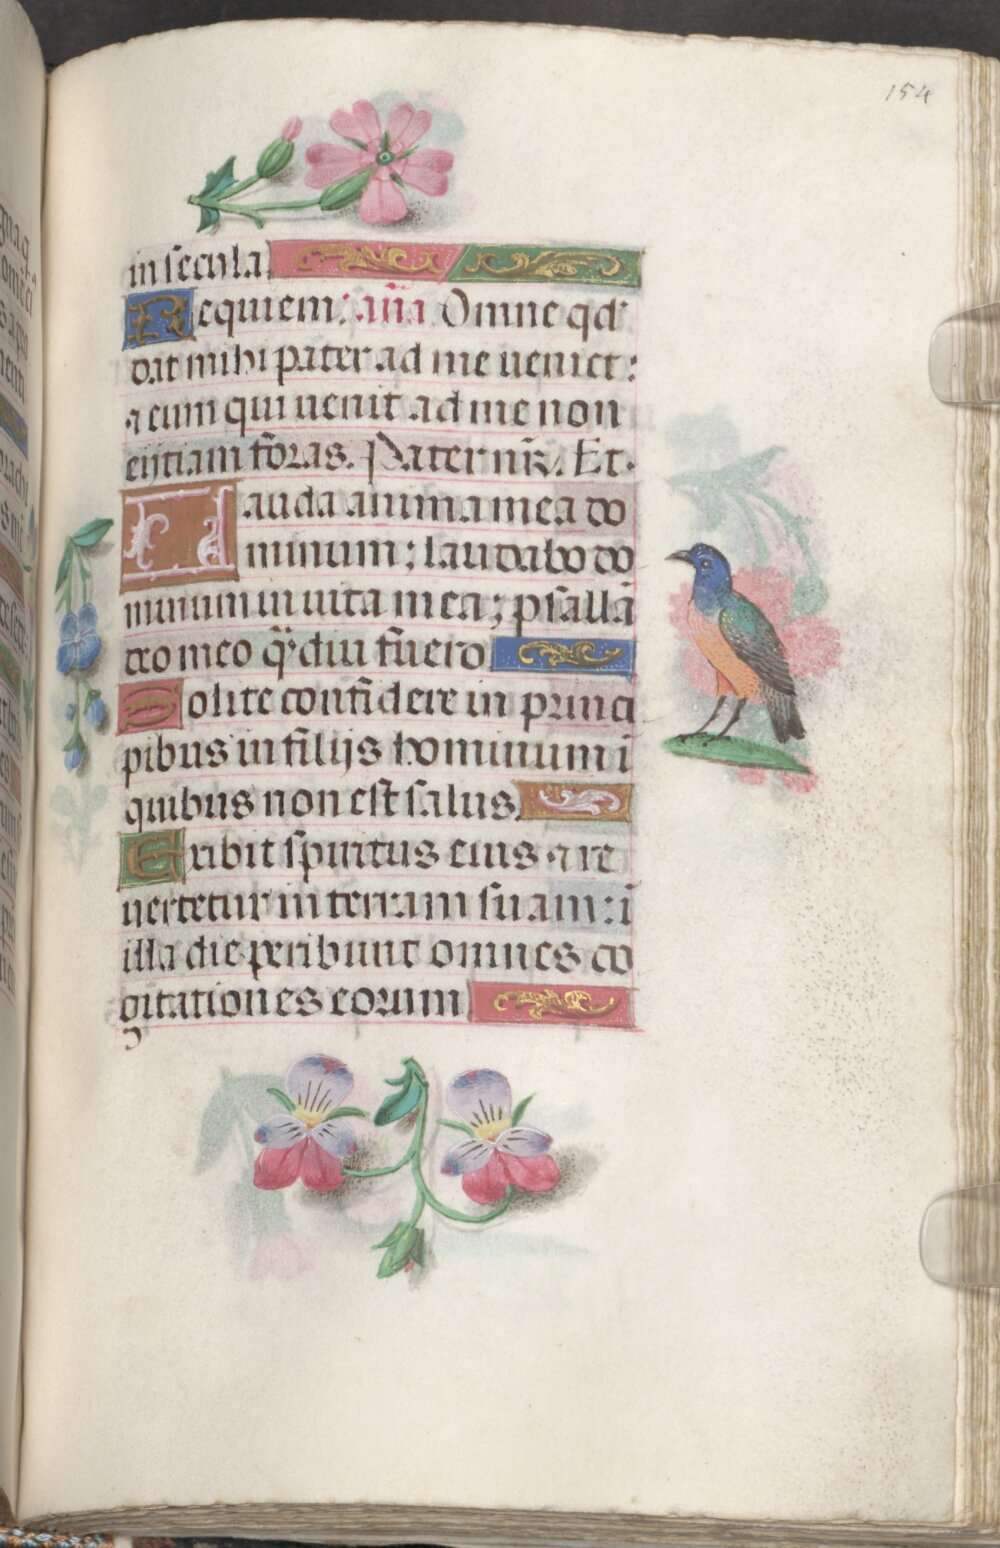 154
in secula.
Requiem: añā Omne qd'
dat mihi pater ad me ueniet:
⁊ eum qui uenit ad me non
eijciam foras. Pater nr̄. Et.
Lauda anima mea do
minum; laudabo do
minum in uita mea; psallā
deo meo q̄diu fuero
Nolite confidere in princi
pibus in filijs hominum ī
quibus non est salus.
Exibit spiritus eius ⁊ re
uertetur in terram suam: ī
illa die peribunt omnes co
gitationes eorum